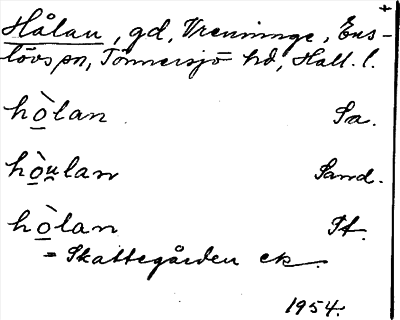 Hålan, gd, Vrenninge, Ens-
lövs sn, Tönnersjö hd, Hall. l.
hò̲lan Sa.
hò̲u̲lan Sand.
hò̲lan St.
= Skattegården ek.
1954.